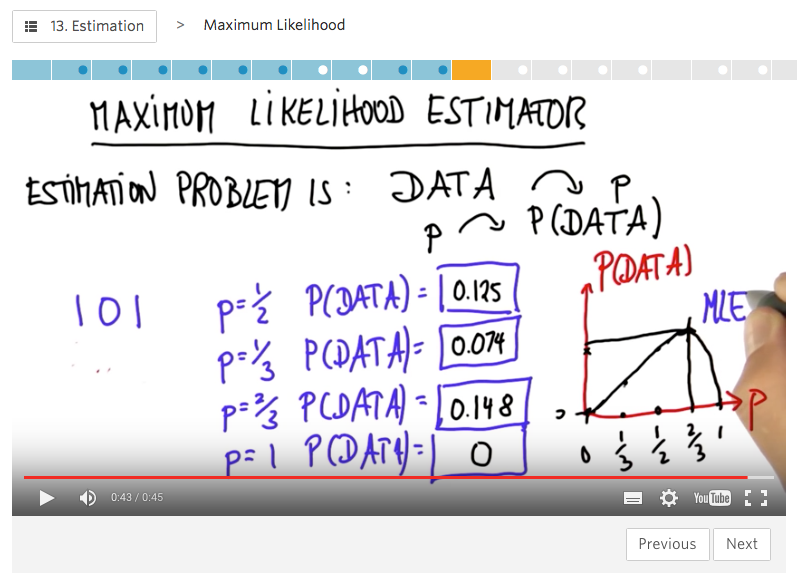 13. Estimation > Maximum Likelihood
MAXIMUM LIKELIHOOD ESTIMATOR
ESTIMATION PROBLEM IS: DATA ↷ P
P ↷ P(DATA)
101
P=1/2 P(DATA) = 0.125
P=1/3 P(DATA)= 0.074
P=2/3 P(DATA) = 0.148
P=1 P(DATA)= 0
P(DATA)
MLE
P
0 1/3 1/2 2/3 1
0:43 / 0:45
YouTube
Previous Next